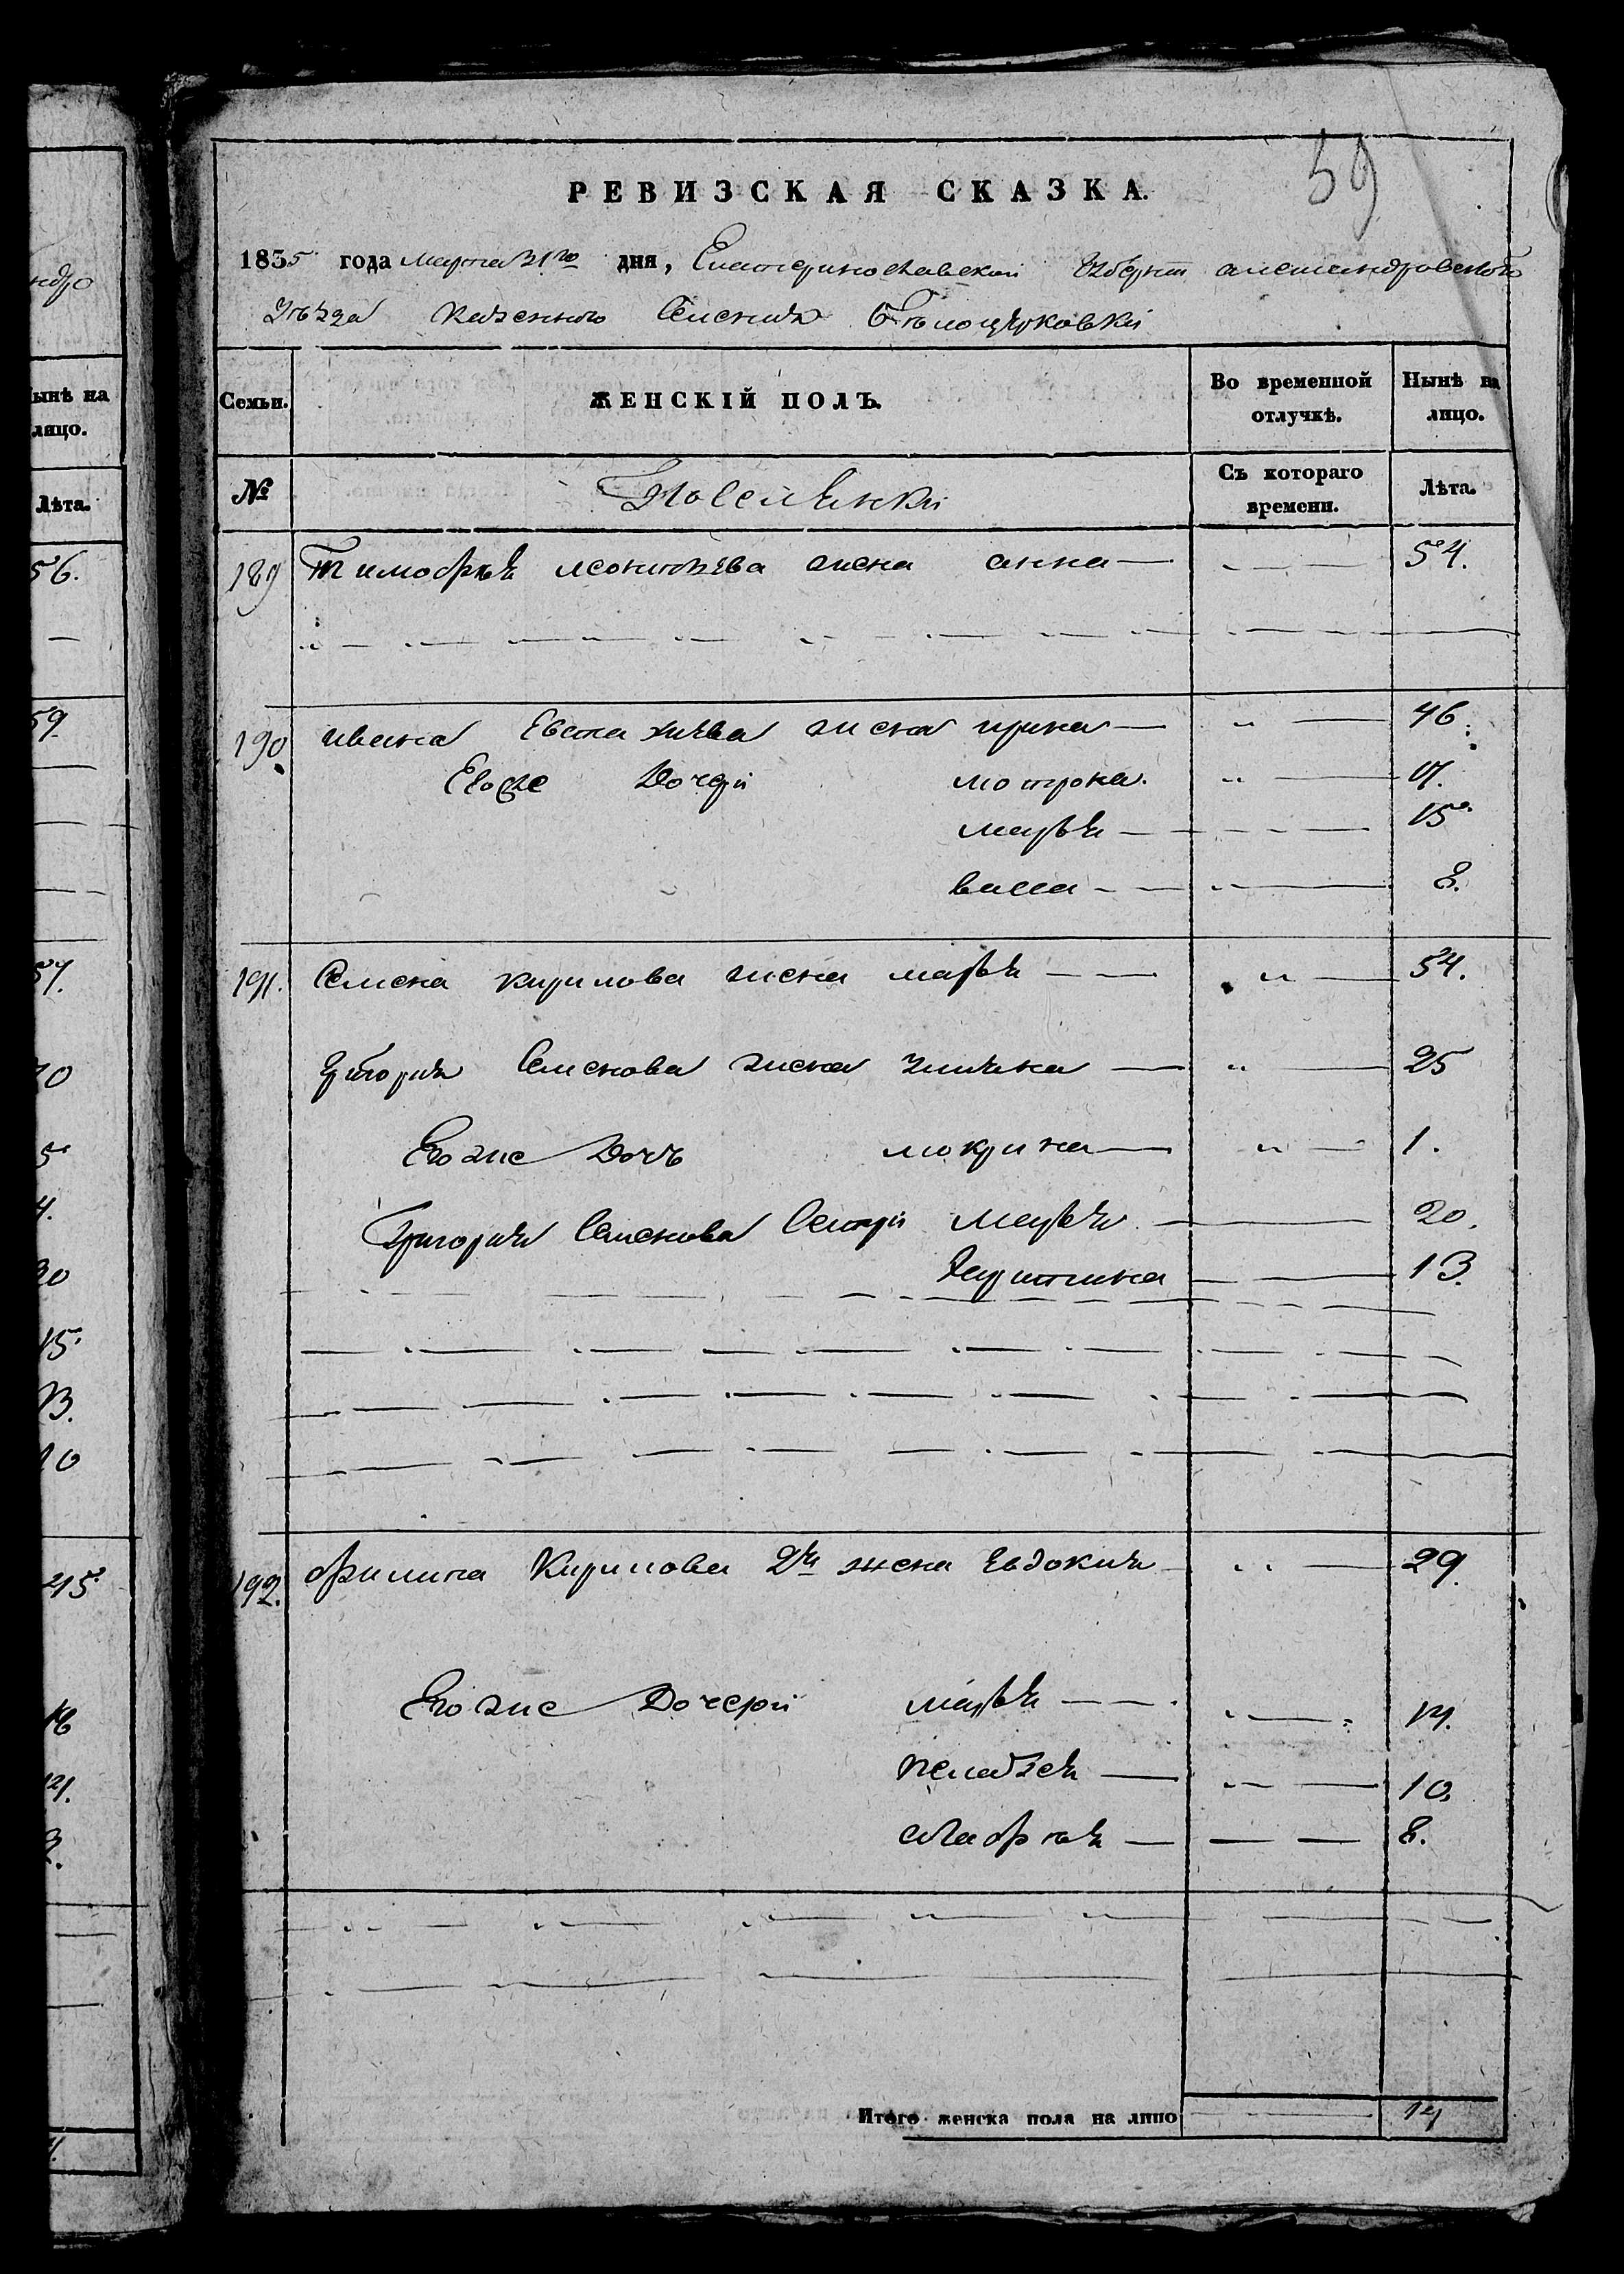 59
РЕВИЗСКАЯ СКАЗКА.
1835 года марта 31го дня, Екатеринославской Губерни александровского
Уѣзда казенного Селения Бѣлоцерковки
Семьи. ЖЕНСКІЙ ПОЛЪ. Во временной отлучкѣ. Нынѣ на лицо.
№ Поселянки Съ котораго времени. Лѣта.
189 Тимофѣя леонтьева жена анна 54.
190 ивана Евстахиева жена ирина 46.
Егоже Дочери мотрона. 17.
марья 15
васса 8.
191. Семена кирилова жена марья 54.
григория Семенова жена улияна 25
Егоже Дочь мокрина 1.
Григория Семенова Сестри Марья 20.
Харитина 13.
192. филипа Кирилова 2я жена Евдокия 29.
Егоже Дочери марья 14.
пелагея 10.
агафия 8.
Итого женска пола на лицо 14
ндро
Нынѣ на
лицо.
Лѣта.
56.
59
57.
30
15
13.
10